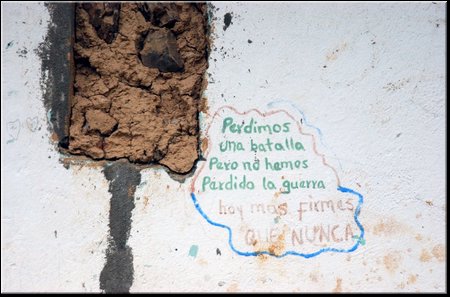 Perdimos
una batalla
Pero no hemos
Perdido la guerra
hoy mas firmes
QUE NUNCA